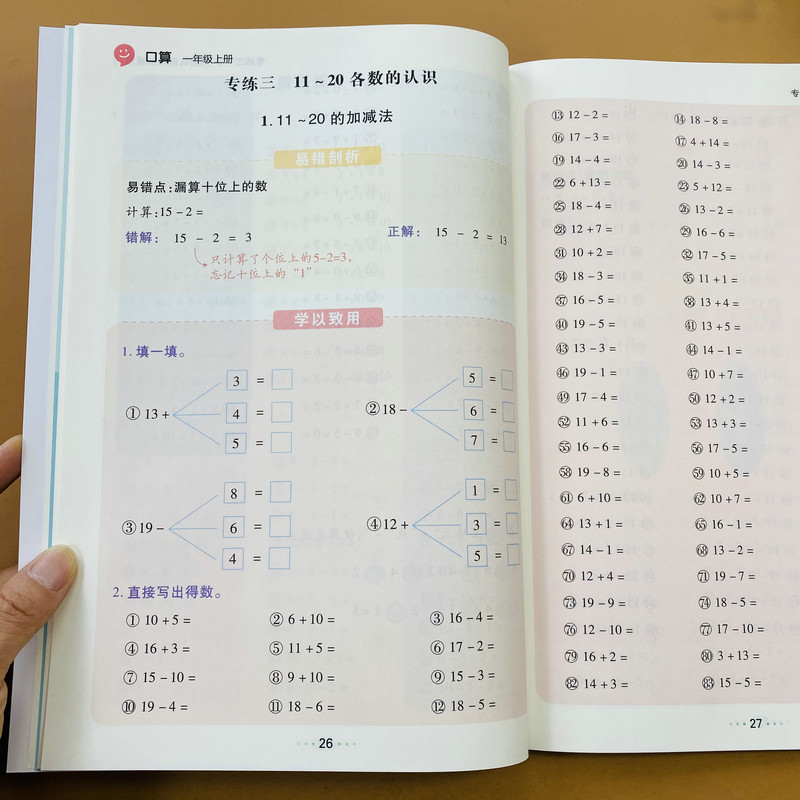 口算 一年级上册
专练三 11~20各数的认识
1.11~20的加减法
易错剖析
易错点:漏算十位上的数
计算:15-2=
错解: 15 - 2 = 3 正解: 15 - 2 = 13
只计算了个位上的5-2=3,
忘记十位上的“1”
学以致用
1.填一填。
3 =
①13+ 4 =
5 =
5 =
②18- 6 =
7 =
8 =
③19- 6 =
4 =
1 =
④12+ 3 =
5 =
2.直接写出得数。
①10+5= ②6+10= ③16-4=
④16+3= ⑤11+5= ⑥17-2=
⑦15-10= ⑧9+10= ⑨15-3=
⑩19-4= ⑪18-6= ⑫18-5=
26
专
⑬12-2= ⑭18-8=
⑯17-3= ⑰4+14=
⑲14-4= ⑳14-3=
㉒6+13= ㉓5+12=
㉕18-4= ㉖13-2=
㉘12+7= ㉙16-6=
㉛10+2= ㉜17-5=
㉞18-3= ㉟11+1=
㊲16-5= ㊳13+4=
㊵19-5= ㊶13+5=
㊸13-3= ㊹14-1=
㊻19-1= ㊼10+7=
㊾17-4= ㊿12+2=
52 11+6= 53 13+3=
55 16-6= 56 17-5=
58 19-8= 59 10+5=
61 6+10= 62 10+7=
64 13+1= 65 16-1=
67 14-1= 68 13-2=
70 12+4= 71 19-7=
73 19-9= 74 18-5=
76 12-10= 77 17-10=
79 16+2= 80 3+13=
82 14+3= 83 15-5=
27